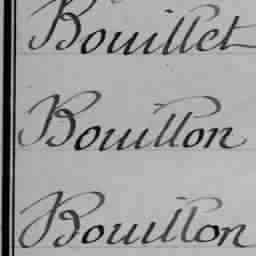 Bouillet
Bouillon
Bouillon